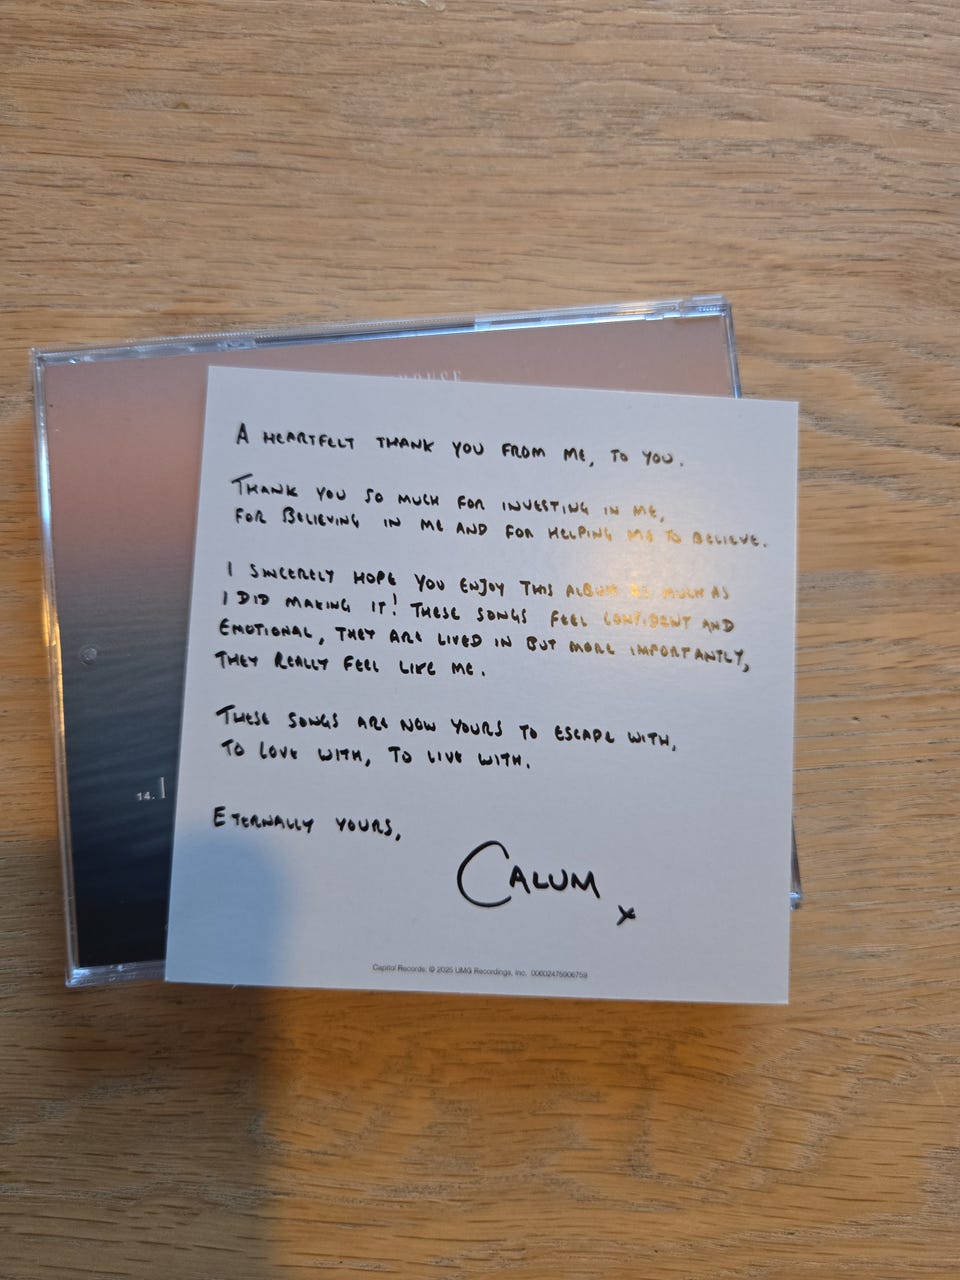 HOUSE
A HEARTFELT THANK YOU FROM ME, TO YOU.
THANK YOU SO MUCH FOR INVESTING IN ME,
FOR BELIEVING IN ME AND FOR HELPING ME TO BELIEVE.
I SINCERELY HOPE YOU ENJOY THIS ALBUM AS MUCH AS
I DID MAKING IT! THESE SONGS FEEL CONFIDENT AND
EMOTIONAL, THEY ARE LIVED IN BUT MORE IMPORTANTLY,
THEY REALLY FEEL LIKE ME.
THESE SONGS ARE NOW YOURS TO ESCAPE WITH,
TO LOVE WITH, TO LIVE WITH.
14. I
ETERNALLY YOURS,
CALUM x
Capitol Records, © 2025 UMG Recordings, Inc. 00602475906759